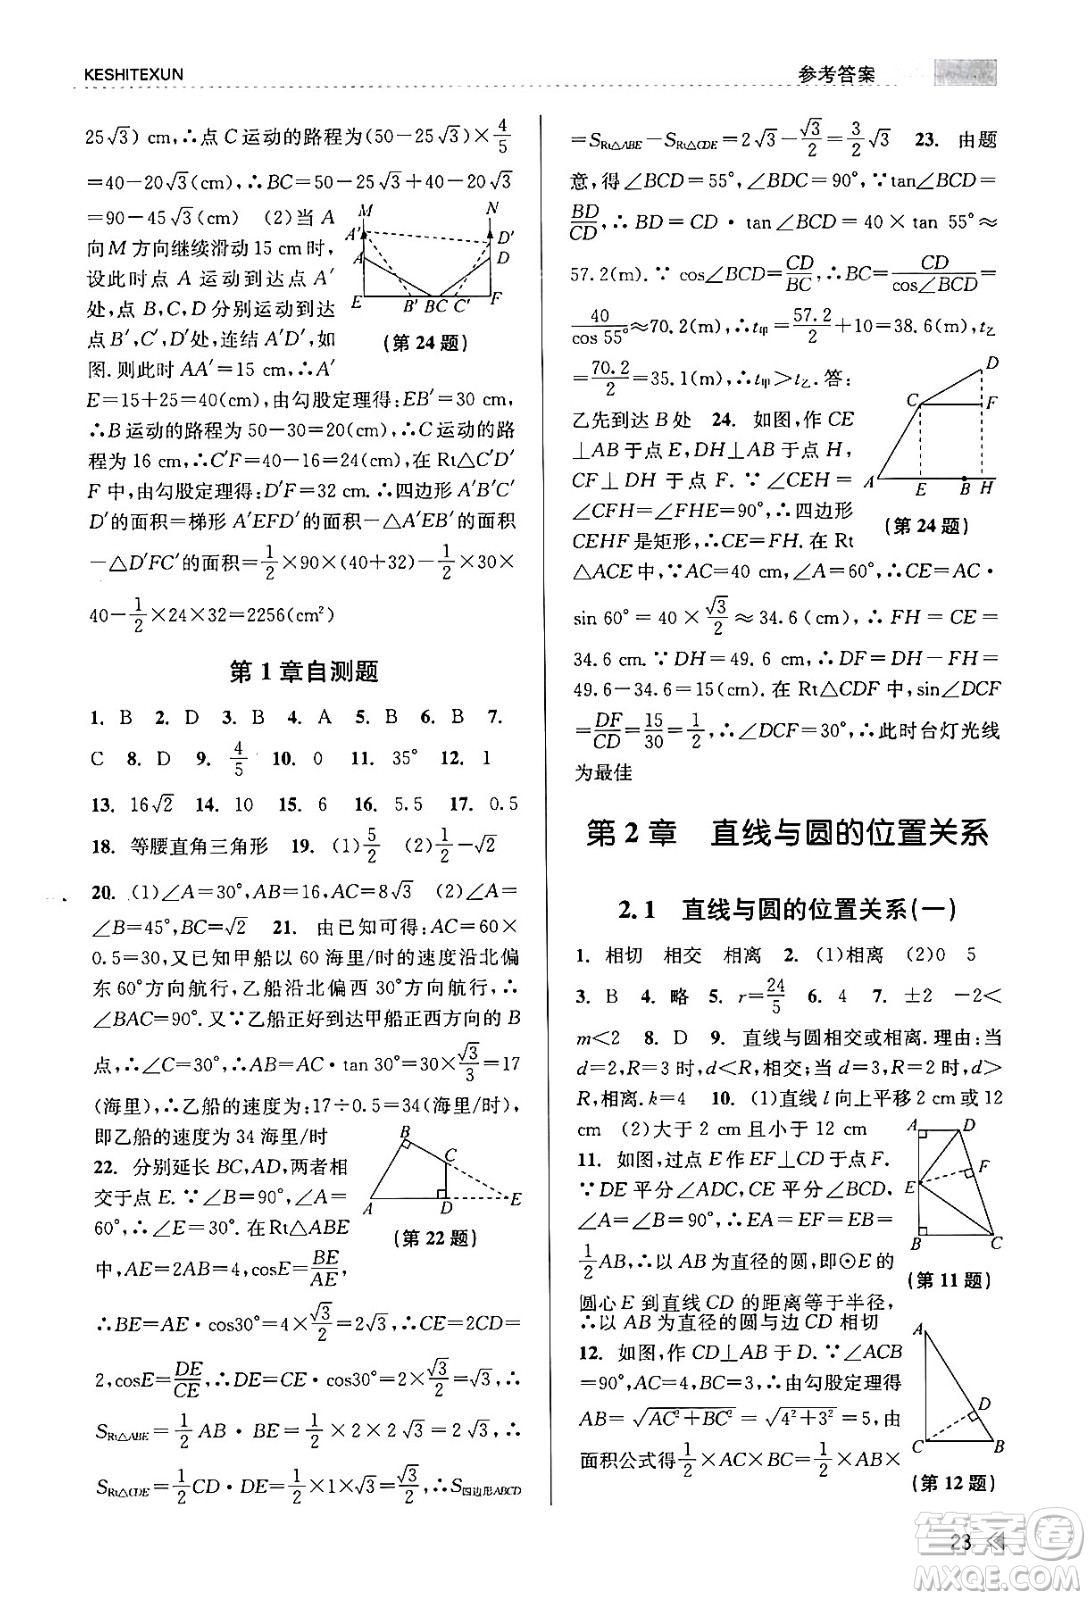 KESHITEXUN
参考答案
25√3) cm,∴点 C 运动的路程为(50−25√3)×4/5
=40−20√3(cm),∴BC=50−25√3+40−20√3
=90−45√3(cm)　(2)当 A
向 M 方向继续滑动 15 cm 时,
设此时点 A 运动到达点 A′
处,点 B,C,D 分别运动到点
B′,C′,D′处,连结 A′D′,如
图.则此时 AA′=15 cm,∴A′
M N A′ D′ A D E B′ BC C′ F
(第 24 题)
E=15+25=40(cm),由勾股定理得:EB′=30 cm,
∴B 运动的路程为 50−30=20(cm),∴C 运动的路
程为 16 cm,∴C′F=40−16=24(cm),在 Rt△C′D′
F 中,由勾股定理得:D′F=32 cm,∴四边形 A′B′C′
D′的面积=梯形 A′EFD′的面积−△A′EB′的面积
−△D′FC′的面积=1/2×90×(40+32)−1/2×30×
40−1/2×24×32=2256(cm²)
第 1 章自测题
1. B　2. D　3. B　4. A　5. B　6. B　7.
C　8. D　9. 4/5　10. 0　11. 35°　12. 1
13. 16√2　14. 10　15. 6　16. 5.5　17. 0.5
18. 等腰直角三角形　19. (1)5/2　(2)1/2−√2
20. (1)∠A=30°,AB=16,AC=8√3　(2)∠A=
∠B=45°,BC=√2　21. 由已知可得:AC=60×
0.5=30,又∵甲船以 60 海里/时的速度沿北偏
东 60°方向航行,乙船沿北偏西 30°方向航行,∴
∠BAC=90°.又∵乙船正好到达甲船正西方向的 B
点,∴∠C=30°,∴AB=AC·tan 30°=30×√3/3=17
(海里),∴乙船的速度为:17÷0.5=34(海里/时),
即乙船的速度为 34 海里/时
22. 分别延长 BC,AD,两者相
交于点 E.∵∠B=90°,∠A=
60°,∴∠E=30°.在 Rt△ABE
中,AE=2AB=4,cosE=BE/AE,
B C A D E
(第 22 题)
∴BE=AE·cos30°=4×√3/2=2√3,∴CE=2CD=
2,cosE=DE/CE,∴DE=CE·cos30°=2×√3/2=√3,∴
S Rt△ABE=1/2 AB·BE=1/2×2×2√3=2√3,
S Rt△CDE=1/2 CD·DE=1/2×1×√3=√3/2,∴S四边形ABCD
=S Rt△ABE−S Rt△CDE=2√3−√3/2=3/2√3　23. 由题
意,得∠BCD=55°,∠BDC=90°,∵tan∠BCD=
BD/CD,∴BD=CD·tan∠BCD=40×tan 55°≈
57.2(m).∵cos∠BCD=CD/BC,∴BC=CD/cos∠BCD=
40/cos 55°≈70.2(m),∴t甲=57.2/2+10=38.6(m),t乙
=70.2/2=35.1(m),∴t甲>t乙.答:
乙先到达 B 处　24. 如图,作 CE
⊥AB 于点 E,DH⊥AB 于点 H,
CF⊥DH 于点 F.∵∠CEH=
∠CFH=∠FHE=90°,∴四边形
CEHF 是矩形,∴CE=FH.在 Rt
D C F A E B H
(第 24 题)
△ACE 中,∵AC=40 cm,∠A=60°,∴CE=AC·
sin 60°=40×√3/2≈34.6(cm),∴FH=CE=
34.6(cm).∵DH=49.6 cm,∴DF=DH−FH=
49.6−34.6=15(cm).在 Rt△CDF 中,sin∠DCF
=DF/CD=15/30=1/2,∴∠DCF=30°,∴此时台灯光线
为最佳
第 2 章　直线与圆的位置关系
2.1　直线与圆的位置关系(一)
1. 相切　相交　相离　2. (1)相离　(2)0　5
3. B　4. 略　5. r=24/5　6. 4　7. ±2　−2<
m<2　8. D　9. 直线与圆相交或相离.理由:当
d=2,R=3 时,d<R,相交;当 d=3,R=2 时,d>
R,相离.k=4　10. (1)直线 l 向上平移 2 cm 或 12
cm　(2)大于 2 cm 且小于 12 cm
11. 如图,过点 E 作 EF⊥CD 于点 F.
∵DE 平分∠ADC,CE 平分∠BCD,
∠A=∠B=90°,∴EA=EF=EB=
1/2 AB,∴以 AB 为直径的圆,即⊙E 的
圆心 E 到直线 CD 的距离等于半径,
∴以 AB 为直径的圆与边 CD 相切
A D F E B C
(第 11 题)
12. 如图,作 CD⊥AB 于 D.∵∠ACB
=90°,AC=4,BC=3,∴由勾股定理得
AB=√AC²+BC²=√4²+3²=5,由
面积公式得1/2×AC×BC=1/2×AB×
A D C B
(第 12 题)
23
答案圈